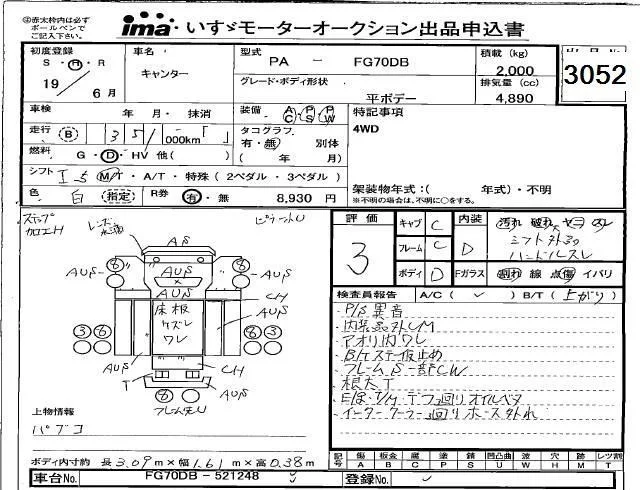 ③赤太枠内は必ず
ボールペンで
ご記入下さい。
ima いすゞモーターオークション出品申込書
初度登録
S・H・R
19 6月
車名
キャンター
型式
PA - FG70DB
グレード・ボディ形状
平ボデー
積載 (kg)
2,000
排気量 (cc)
4,890
出品No.
3052
車検 年 月・ 抹消
走行 B 35 ,000km「 」
燃料 G・D・HV 他( )
シフト I-5 M/T・A/T・特殊(2ペダル・3ペダル)
色 白 (指定) R券 有・無 8,930 円
装備 AC PS PW
タコグラフ
有・無 別体
( 年 月)
特記事項
4WD
架装物年式:( 年式)・不明
※不明の場合は、不明に〇をする。
ステップ
加工H
AS
⑧ ⑧
AUS AUS AUS
AUS
CH
床板
ケズレ
ワレ
AUS
③⑥ ⑥③
AUS
CH
T
AUS
⑧
上物情報
パブコ
ボディ内寸約 長3.09m×幅1.61m×高0.38m
車台No. FG70DB-521248
評価
3
キャブ C
フレーム C
ボディ D
内装 D
汚れ 破れ ヤニ スレ
シフト外れ
ハンドルスレ
Fガラス 割れ 線 点傷 イバリ
検査員報告 A/C( ✓ ) B/T(上がり)
・P/S異音
・内装品外しM
・アオリ内ワレ
・B/Tステー仮止め
・フレームS一部CW
・根太T
・E/G・T/M・デフ回りオイルベタ
・インタークーラー回りホース外れ
記号 傷A 板金B 腐C 塗P 錆S 凹凸曲U 波W 穴H 跡M レツ割T D
登録No.